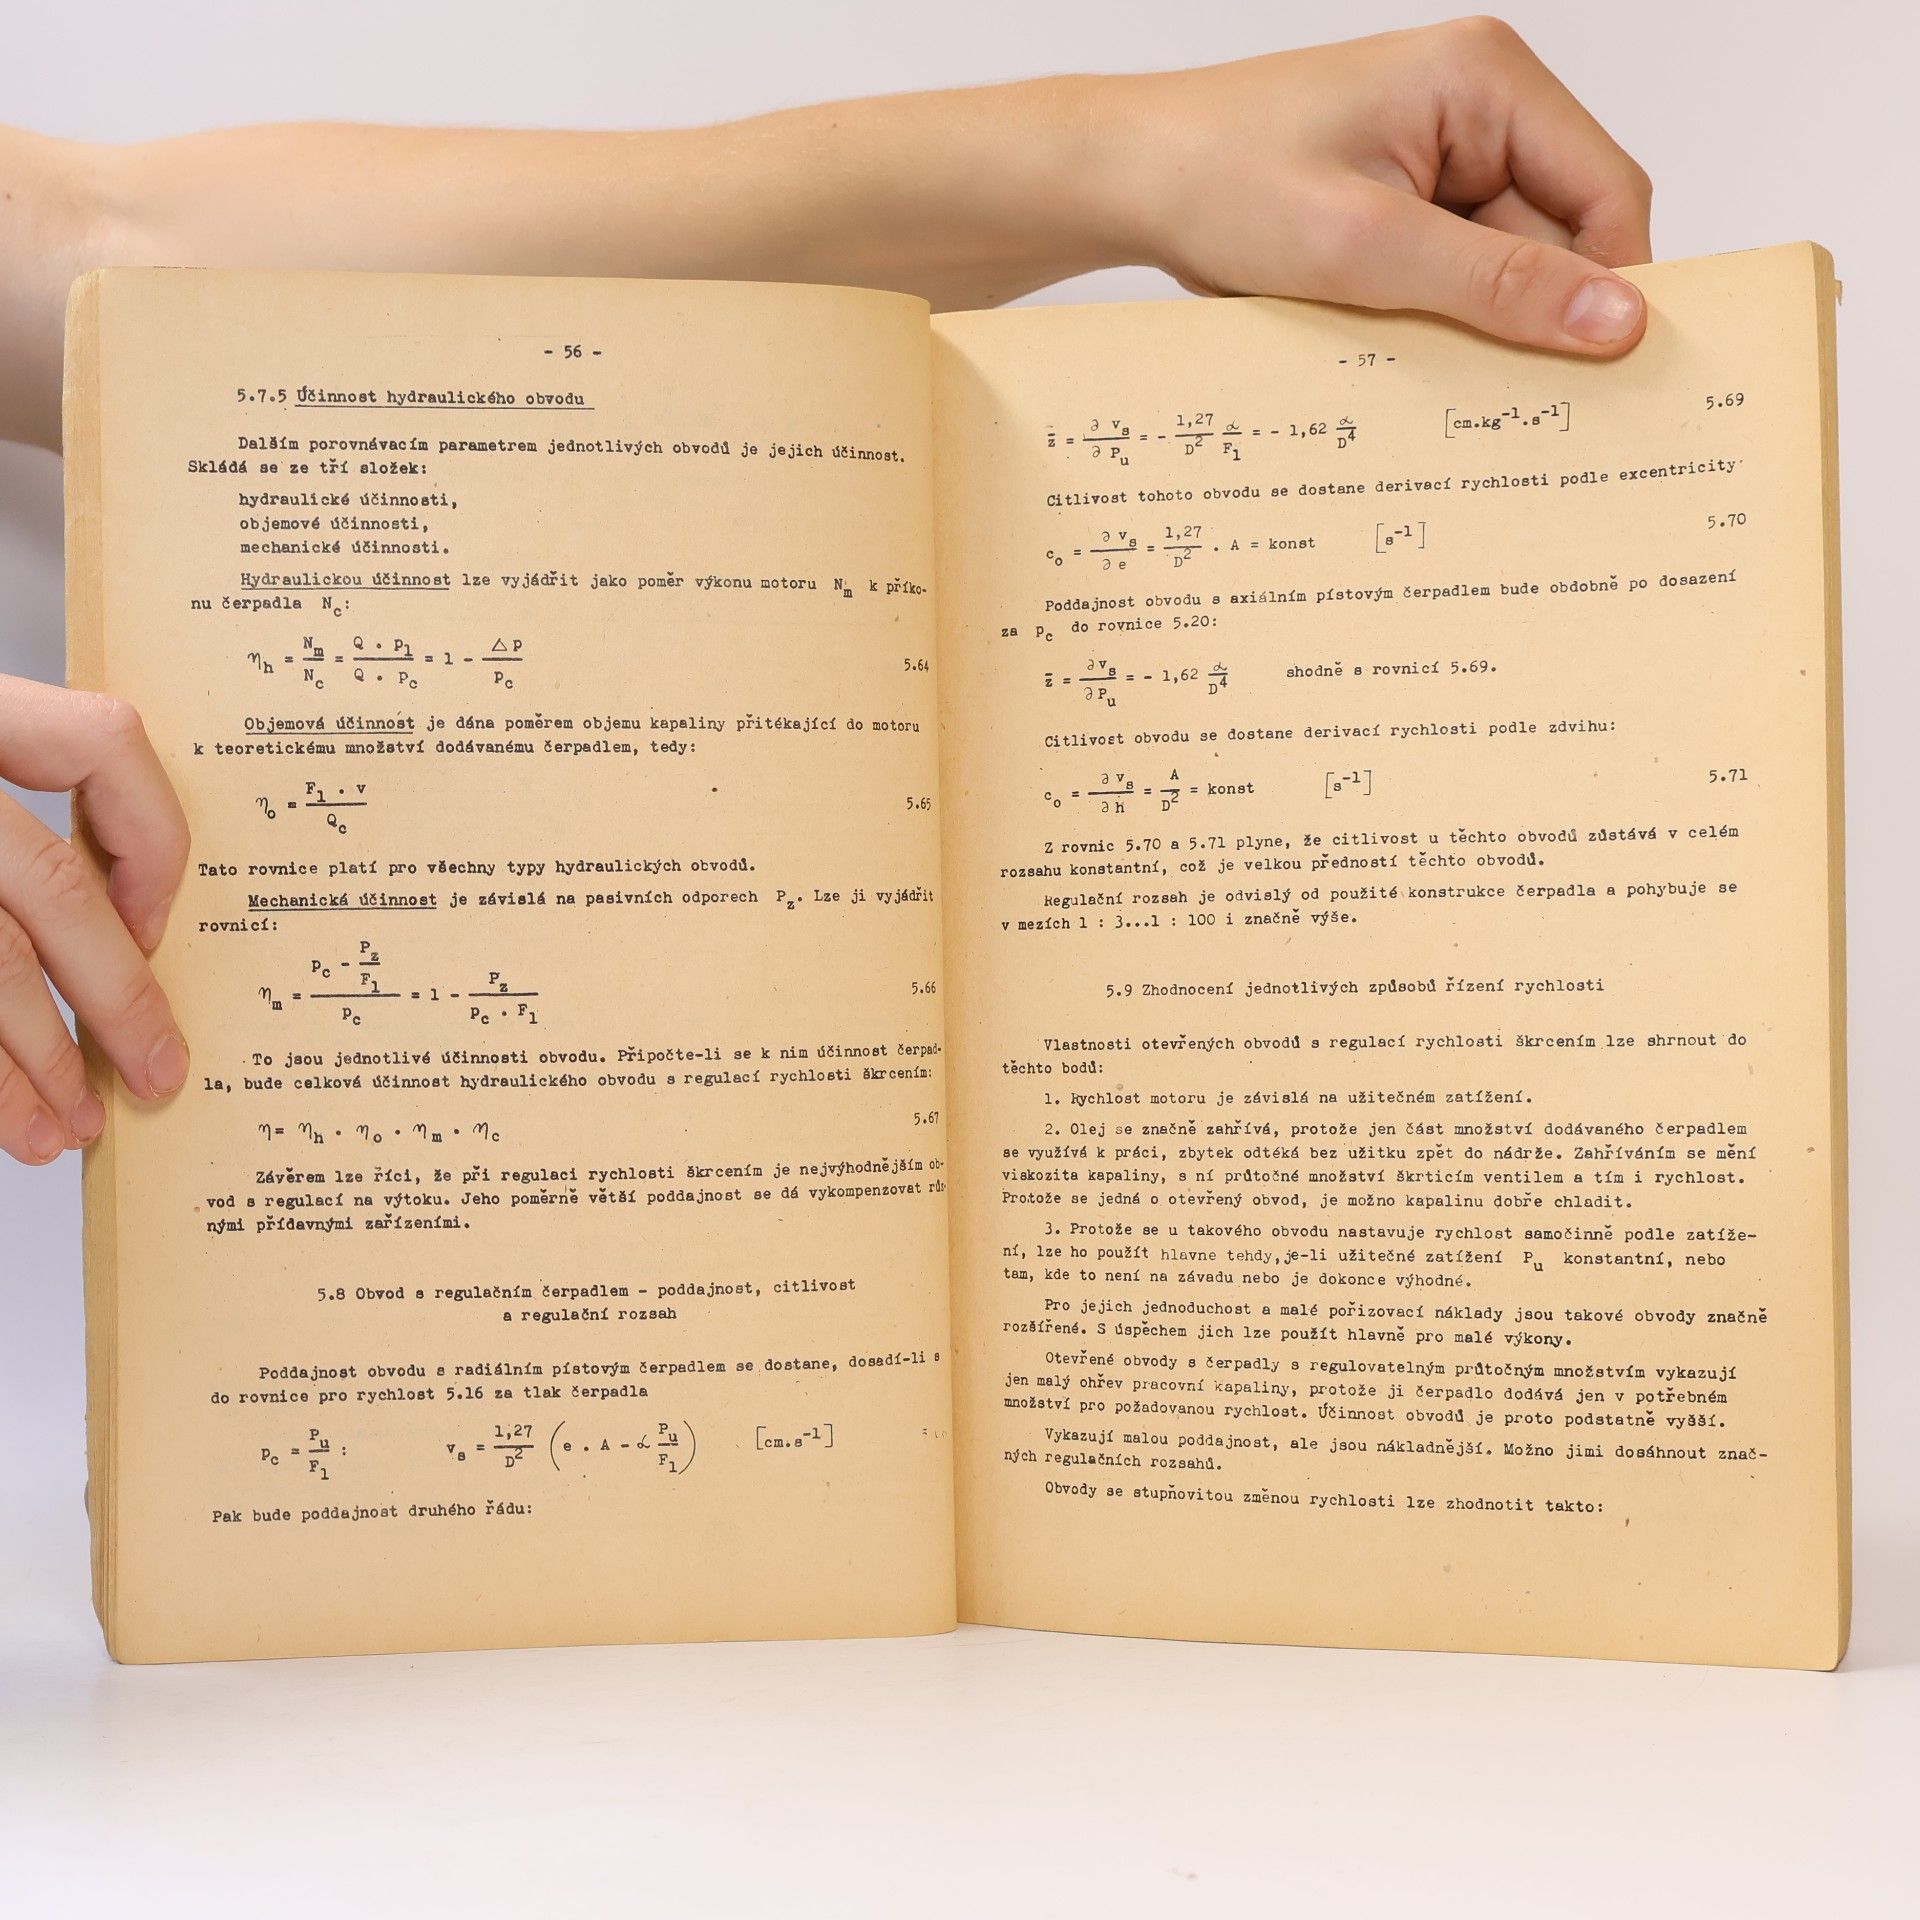 - 56 -
5.7.5 Účinnost hydraulického obvodu
Dalším porovnávacím parametrem jednotlivých obvodů je jejich účinnost.
Skládá se ze tří složek:
hydraulické účinnosti,
objemové účinnosti,
mechanické účinnosti.
Hydraulickou účinnost lze vyjádřit jako poměr výkonu motoru N_m k příko-
nu čerpadla N_c:
η_h = N_m / N_c = Q . p_1 / Q . p_c = 1 - △p / p_c 5.64
Objemová účinnost je dána poměrem objemu kapaliny přitékající do motoru
k teoretickému množství dodávanému čerpadlem, tedy:
η_o = F_1 . v / Q_c 5.65
Tato rovnice platí pro všechny typy hydraulických obvodů.
Mechanická účinnost je závislá na pasivních odporech P_z. Lze ji vyjádřit
rovnicí:
η_m = (p_c - P_z / F_1) / p_c = 1 - P_z / p_c . F_1 5.66
To jsou jednotlivé účinnosti obvodu. Připočte-li se k nim účinnost čerpad-
la, bude celková účinnost hydraulického obvodu s regulací rychlosti škrcením:
η = η_h . η_o . η_m . η_c 5.67
Závěrem lze říci, že při regulaci rychlosti škrcením je nejvýhodnějším ob-
vod s regulací na výtoku. Jeho poměrně větší poddajnost se dá vykompenzovat růz-
nými přídavnými zařízeními.
5.8 Obvod s regulačním čerpadlem - poddajnost, citlivost
a regulační rozsah
Poddajnost obvodu s radiálním pístovým čerpadlem se dostane, dosadí-li s
do rovnice pro rychlost 5.16 za tlak čerpadla
p_c = P_u / F_1 : v_s = 1,27 / D^2 (e . A - α P_u / F_1) [cm.s^-1]
Pak bude poddajnost druhého řádu:
- 57 -
z̄ = ∂ v_s / ∂ P_u = - 1,27 / D^2 α / F_1 = - 1,62 α / D^4 [cm.kg^-1.s^-1] 5.69
Citlivost tohoto obvodu se dostane derivací rychlosti podle excentricity
c_o = ∂ v_s / ∂ e = 1,27 / D^2 . A = konst [s^-1] 5.70
Poddajnost obvodu s axiálním pístovým čerpadlem bude obdobně po dosazení
za p_c do rovnice 5.20:
z̄ = ∂ v_s / ∂ P_u = - 1,62 α / D^4 shodně s rovnicí 5.69.
Citlivost obvodu se dostane derivací rychlosti podle zdvihu:
c_o = ∂ v_s / ∂ h = A / D^2 = konst [s^-1] 5.71
Z rovnic 5.70 a 5.71 plyne, že citlivost u těchto obvodů zůstává v celém
rozsahu konstantní, což je velkou předností těchto obvodů.
Regulační rozsah je odvislý od použité konstrukce čerpadla a pohybuje se
v mezích 1 : 3...1 : 100 i značně výše.
5.9 Zhodnocení jednotlivých způsobů řízení rychlosti
Vlastnosti otevřených obvodů s regulací rychlosti škrcením lze shrnout do
těchto bodů:
1. Rychlost motoru je závislá na užitečném zatížení.
2. Olej se značně zahřívá, protože jen část množství dodávaného čerpadlem
se využívá k práci, zbytek odtéká bez užitku zpět do nádrže. Zahříváním se mění
viskozita kapaliny, s ní průtočné množství škrticím ventilem a tím i rychlost.
Protože se jedná o otevřený obvod, je možno kapalinu dobře chladit.
3. Protože se u takového obvodu nastavuje rychlost samočinně podle zatíže-
ní, lze ho použít hlavne tehdy, je-li užitečné zatížení P_u konstantní, nebo
tam, kde to není na závadu nebo je dokonce výhodné.
Pro jejich jednoduchost a malé pořizovací náklady jsou takové obvody značně
rozšířené. S úspěchem jich lze použít hlavně pro malé výkony.
Otevřené obvody s čerpadly s regulovatelným průtočným množstvím vykazují
jen malý ohřev pracovní kapaliny, protože ji čerpadlo dodává jen v potřebném
množství pro požadovanou rychlost. Účinnost obvodů je proto podstatně vyšší.
Vykazují malou poddajnost, ale jsou nákladnější. Možno jimi dosáhnout znač-
ných regulačních rozsahů.
Obvody se stupňovitou změnou rychlosti lze zhodnotit takto: